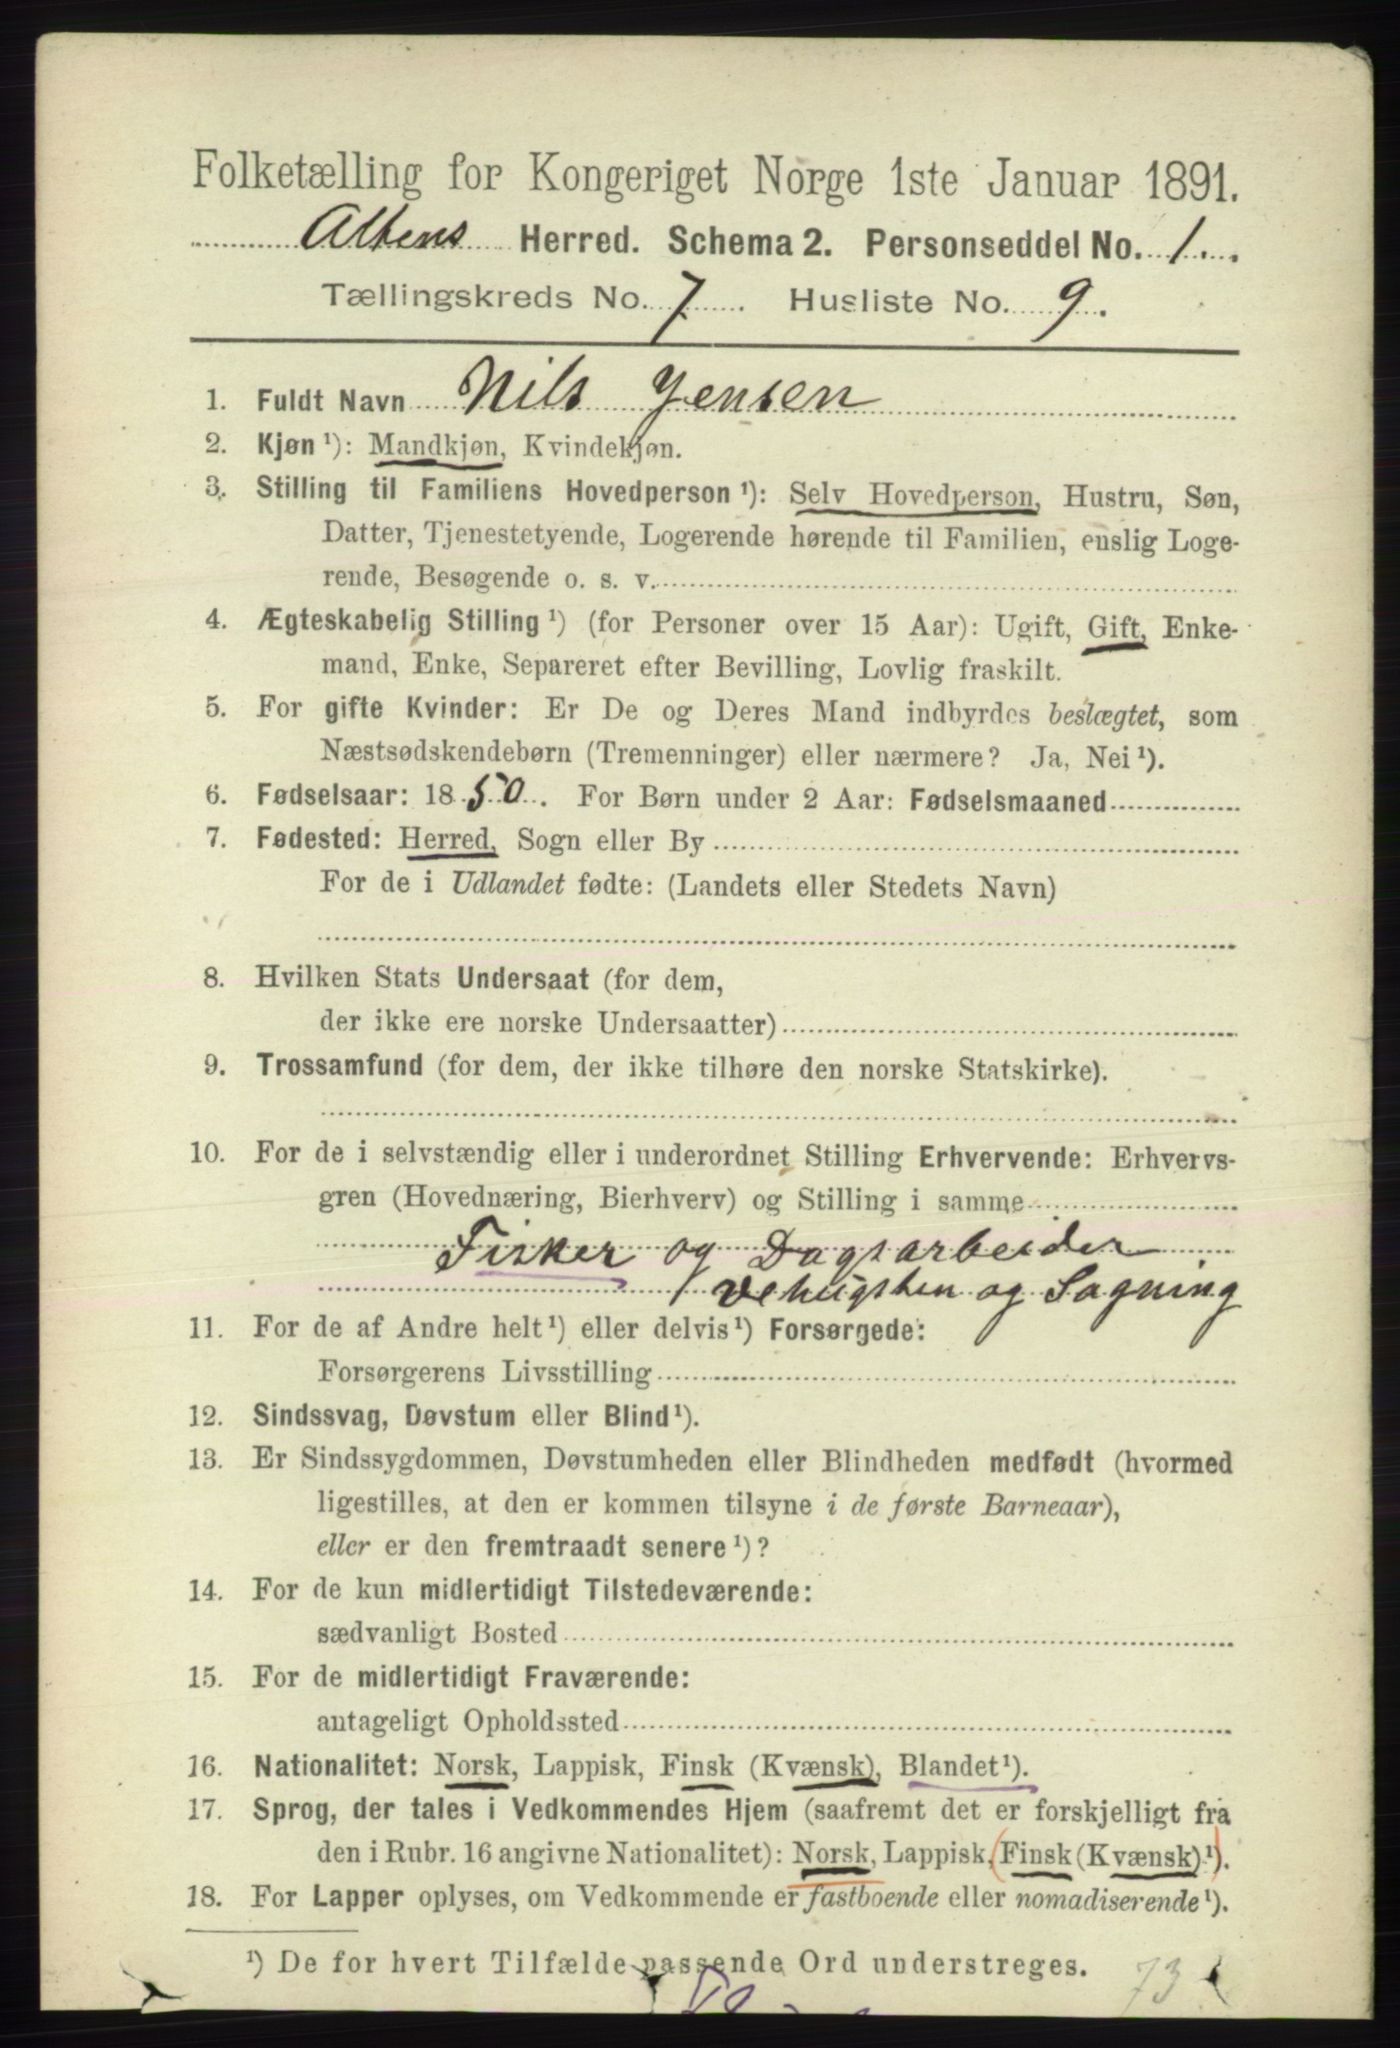 Folketælling for Kongeriget Norge 1ste Januar 1891.
Altens Herred. Schema 2. Personseddel No. 1.
Tællingskreds No. 7. Husliste No. 9.
1. Fuldt Navn Nils Jensen
2. Kjøn ¹): Mandkjøn, Kvindekjøn.
3. Stilling til Familiens Hovedperson ¹): Selv Hovedperson, Hustru, Søn,
Datter, Tjenestetyende, Logerende hørende til Familien, enslig Loge-
rende, Besøgende o. s. v.
4. Ægteskabelig Stilling ¹) (for Personer over 15 Aar): Ugift, Gift, Enke-
mand, Enke, Separeret efter Bevilling, Lovlig fraskilt.
5. For gifte Kvinder: Er De og Deres Mand indbyrdes beslægtet, som
Næstsødskendebørn (Tremenninger) eller nærmere? Ja, Nei ¹).
6. Fødselsaar: 1850. For Børn under 2 Aar: Fødselsmaaned
7. Fødested: Herred, Sogn eller By
For de i Udlandet fødte: (Landets eller Stedets Navn)
8. Hvilken Stats Undersaat (for dem,
der ikke ere norske Undersaatter)
9. Trossamfund (for dem, der ikke tilhøre den norske Statskirke).
10. For de i selvstændig eller i underordnet Stilling Erhvervende: Erhvervs-
gren (Hovednæring, Bierhverv) og Stilling i samme
Fisker og Dagsarbeider
og Sagning
11. For de af Andre helt ¹) eller delvis ¹) Forsørgede:
Forsørgerens Livsstilling
12. Sindssvag, Døvstum eller Blind ¹).
13. Er Sindssygdommen, Døvstumheden eller Blindheden medfødt (hvormed
ligestilles, at den er kommen tilsyne i de første Barneaar),
eller er den fremtraadt senere ¹)?
14. For de kun midlertidigt Tilstedeværende:
sædvanligt Bosted
15. For de midlertidigt Fraværende:
antageligt Opholdssted
16. Nationalitet: Norsk, Lappisk, Finsk (Kvænsk), Blandet ¹).
17. Sprog, der tales i Vedkommendes Hjem (saafremt det er forskjelligt fra
den i Rubr. 16 angivne Nationalitet): Norsk, Lappisk, (Finsk (Kvænsk) ¹).
18. For Lapper oplyses, om Vedkommende er fastboende eller nomadiserende ¹).
¹) De for hvert Tilfælde passende Ord understreges.
73